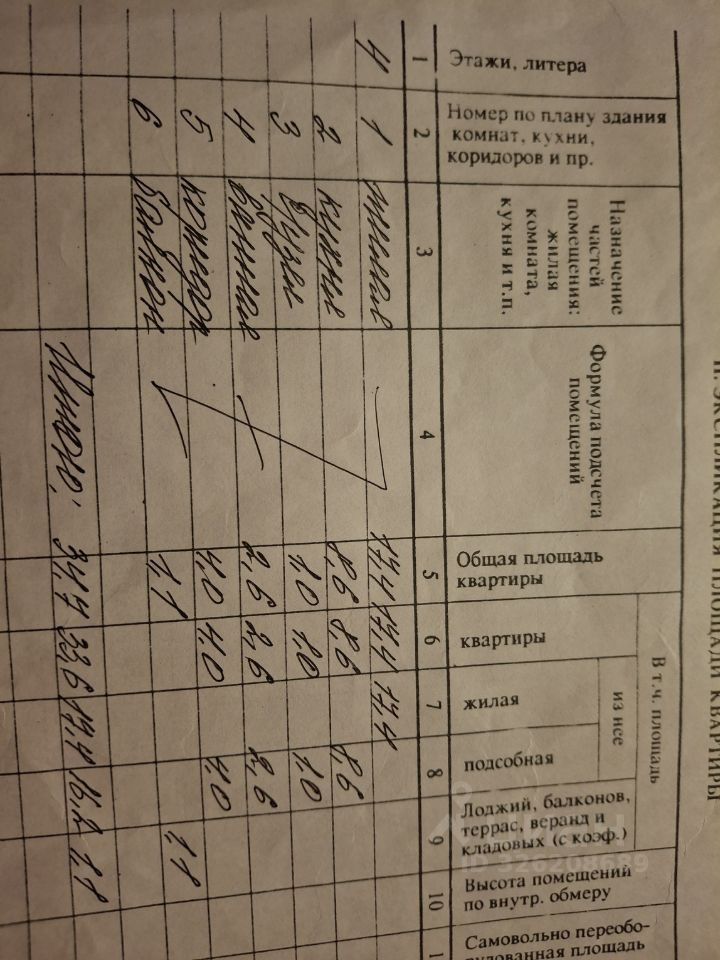 II. ЭКСПЛИКАЦИЯ ПЛОЩАДИ КВАРТИРЫ
Этажи, литера
Номер по плану здания
комнат, кухни,
коридоров и пр.
Назначение
частей
помещения:
жилая
комната,
кухня и т.п.
Формула подсчета
помещений
Общая площадь
квартиры
В т.ч. площадь
квартиры
из нее
жилая
подсобная
Лоджий, балконов,
террас, веранд и
кладовых (с коэф.)
Высота помещений
по внутр. обмеру
Самовольно переобо-
рудованная площадь
1 2 3 4 5 6 7 8 9 10 1
4 1 жилая 17,4 17,4 17,4
2 кухня 8,6 8,6 8,6
3 туал 1,0 1,0 1,0
4 ванная 2,6 2,6 2,6
5 коридор 4,0 4,0 4,0
6 балкон 1,1 1,1
Итого: 34,7 33,6 17,4 16,2 1,1
ID 326208689